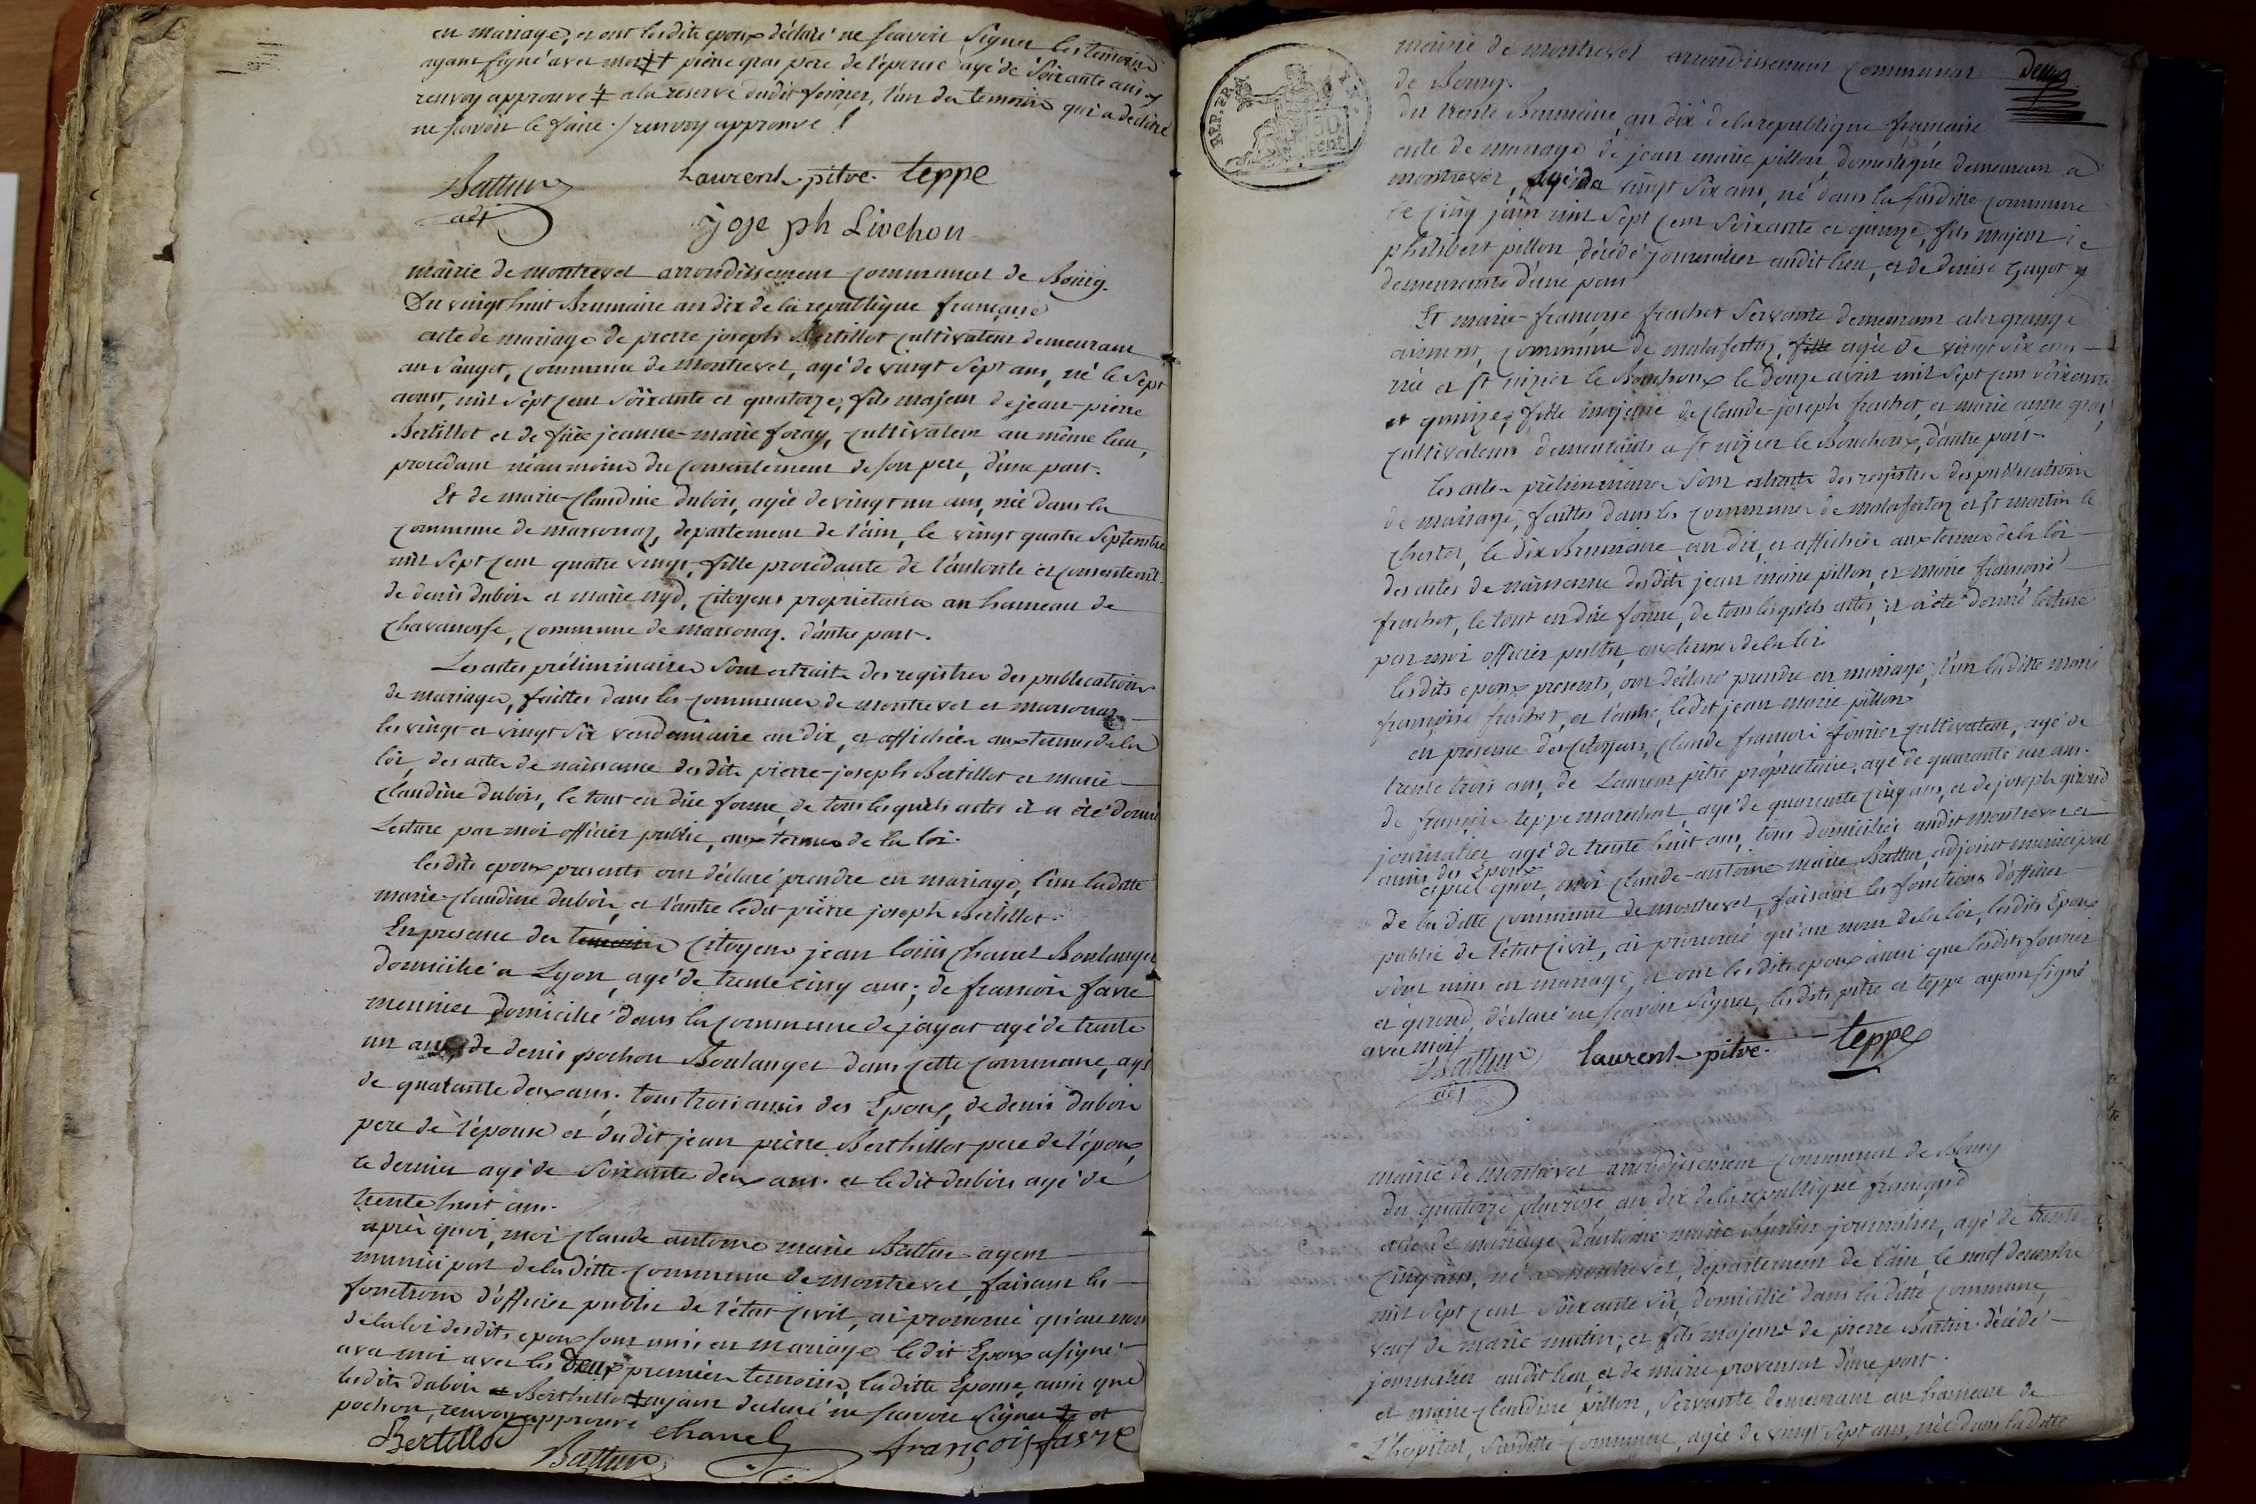 en mariage, et ont lesdits epoux déclaré ne scavoir signer les temoins
ayant signé avec moi ‡ pierre gras pere de l'épouse agé de soixante ans
renvoy approuvé ‡ a la reserve dudit fourier, l'un des temoins qui a declaré
ne scavoir le faire / renvoy approuvé
Battur
adj
Laurent pitre teppe
joseph Livehon
mairie de montrevel arrondissement communal de Bourg.
Du vingt huit Brumaire an dix de la republique française
acte de mariage de pierre joseph Bertillot cultivateur demeurant
au sauget, commune de montrevel, agé de vingt sept ans, né le sept
aout, mil sept cent soixante et quatorze, fils majeur de jean-pierre
Bertillot et de fuee jeanne-marie foray, cultivateur au même lieu,
procedant néanmoins du consentement de son pere, d'une part.
Et de marie-claudine dubois, agée de vingt un ans, née dans la
commune de marsonaz, departement de l'ain, le vingt quatre septembre
mil sept cent quatre vingt, fille procedante de l'autorité et consentemt
de denis dubois et marie nyd, citoyens proprietaires au hameau de
chavanosse, commune de marsonaz. d'autre part.
Les actes préliminaires sont extraits des registres des publications
de mariages, faittes dans les communes de montrevel et marsonaz
les vingt et vingt six vendemiaire an dix, et affichées aux termes de la
loi, des actes de naissance desdits pierre-joseph Bertillot et marie
claudine dubois, le tout en due forme, de tous lesquels actes il a été donné
lecture par moi officier public, aux termes de la loi.
lesdits epoux presents ont déclaré prendre en mariage, l'un laditte
marie-claudine dubois, et l'autre ledit pierre joseph Bertillot.
En presence des temoins citoyens jean louis chanel Boulanger
domicilié a Lyon, agé de trente cinq ans; de francois favre
meunier domicilié dans la commune de jayat agé de trente
un ans, de denis pochon Boulanger dans cette commune, agé
de quarante deux ans. tous trois amis des Epoux, de denis dubois
pere de l'épouse et dudit jean pierre Berthillot pere de l'époux,
ce dernier agé de soixante deux ans. et ledit dubois agé de
trente huit ans.
après quoi, moi claude antoine marie Battur agent
municipal de laditte commune de montrevel, faisant les
fonctions d'officier public de l'état civil, ai prononcé qu'au nom
de la loi lesdits epoux sont unis en mariage ledit Epoux a signé
avec moi avec les deux premiers temoins, laditte Epouse, ainsi que
lesdits dubois et Berthillot ‡ ayant declaré ne scavoir signer ‡ et
pochon, renvoy approuvé
Bertillot Battur chanel françois favre
REP. FRA.
50
cent
deux
mairie de montrevel arrondissement communal
de Bourg.
du trente Brumaire an dix de la republique française
acte de mariage de jean marie pillon, domestique demeurant a
montrevel, agé de vingt six ans, né dans la susditte commune
le cinq juin mil sept cent soixante et quinze, fils majeur de
philibert pillon, décédé journalier audit lieu, et de denise Guyot y
demeurante d'une part
Et marie-françoise frachet servante demeurant a la grange
commune de malafretaz, fille agée de vingt six ans
née a st nizier le Bouchoux le douze avril mil sept cent soixante
et quinze, fille majeure de claude-joseph frachet, et marie anne gras,
cultivateurs demeurants a st nizier le Bouchoux, d'autre part.
les actes préliminaires sont extraits des registres des publications
de mariage, faittes dans les communes de malafretaz et st martin le
chatel, le dix Brumaire an dix, et affichées aux termes de la loi
des actes de naissance desdits jean marie pillon, et marie françoise
frachet, le tout en due forme, de tous lesquels actes, il a été donné lecture
par moi officier public, aux termes de la loi
lesdits epoux presents, ont déclaré prendre en mariage, l'un laditte marie
françoise frachet, et l'autre, ledit jean marie pillon
en presence des citoyens, claude francois fourier cultivateur, agé de
trente trois ans, de Laurent pitre proprietaire, agé de quarante un ans.
de françois teppe marechal, agé de quarante cinq ans, et de joseph girard
journalier agé de trente huit ans, tous domiciliés audit montrevel et
amis des Epoux
après quoi, moi claude-antoine marie Battur, adjoint municipal
de la ditte commune de montrevel, faisant les fonctions d'officier
public de l'état civil, ai prononcé qu'au nom de la loi, lesdits Epoux
sont unis en mariage, et ont lesdits epoux ainsi que lesdits fourier
et girard, déclaré ne scavoir signer, lesdits pitre et teppe ayant signé
avec moi
Battur adj laurent pitre. teppe
mairie de montrevel arrondissement communal de Bourg
du quatorze pluviose an dix de la republique française
acte de mariage d'antoine marie Burtin journalier, agé de trente
cinq ans, né a montrevel, departement de l'ain, le neuf decembre
mil sept cent soixante six, domicilié dans la ditte commune,
veuf de marie mutin; et fils majeur de pierre Burtin décédé
journalier audit lieu, et de marie provensal d'une part.
et marie claudine pillon, servante, demeurant au hameau de
l'hopital, susditte commune, agée de vingt sept ans, née dans laditte